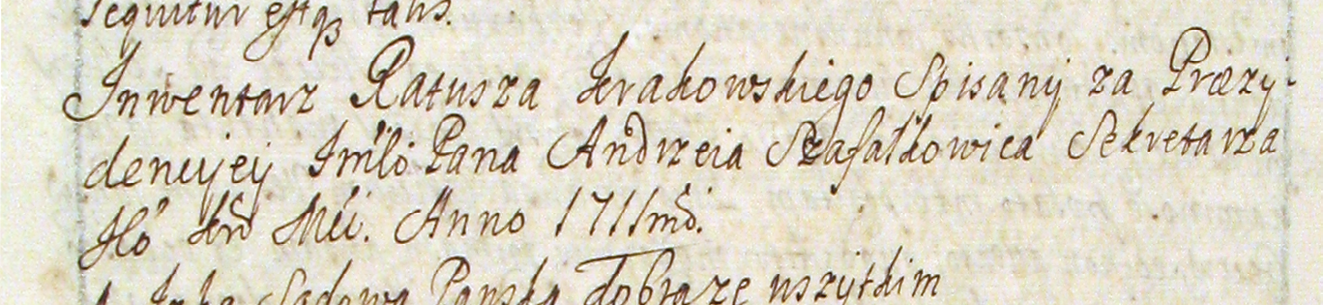 sequitur estq3 talis.
Inwentarz Ratusza Krakowskiego Spisany za Præzy-
dencyjey Jmści Pana Andrzeia Szafałkowica Sekretarza
Anno 1711mo.
Sądowa Pańska dobrze wszytkim